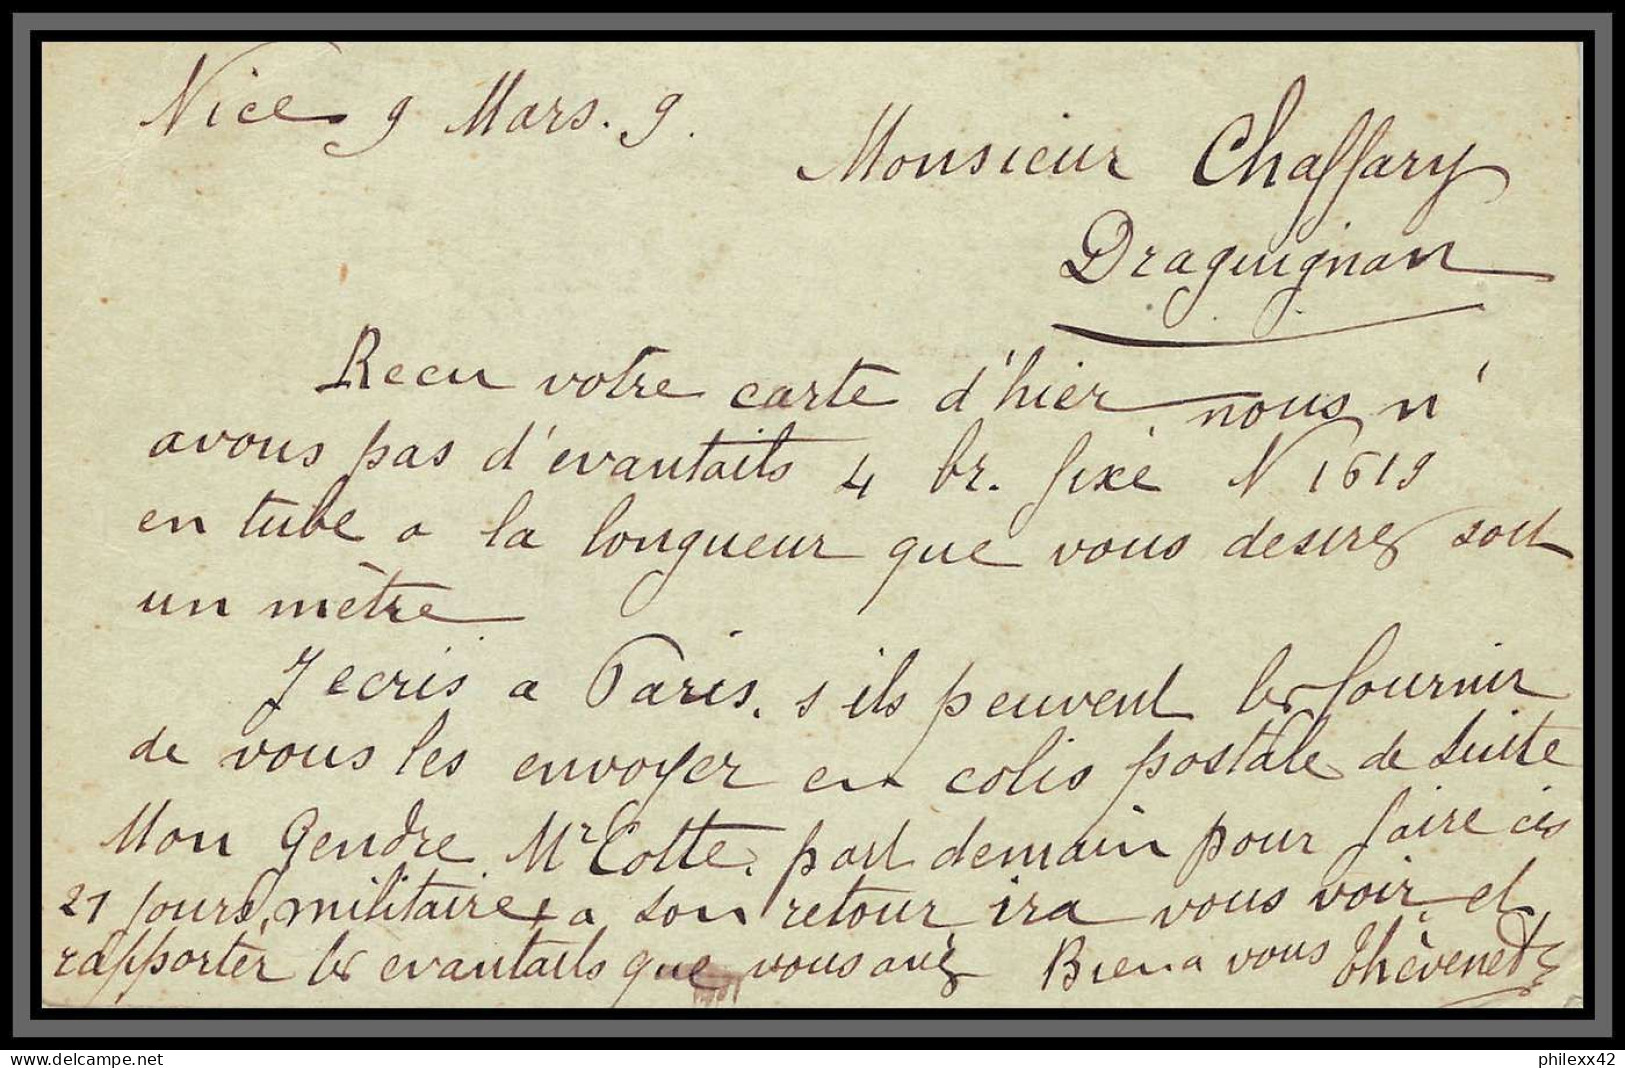 Nice 9 Mars. 9.
Monsieur Chaffary
Draguignan
Recu votre carte d'hier nous n'
avons pas d'evantails 4 br. fixé N 1619
en tube a la longueur que vous desirez soit
un mètre
J ecris a Paris. s ils peuvent les fournir
de vous les envoyer en colis postale de suite
Mon Gendre Mr Cotte. part demain pour faire ces
21 jours militaire a son retour ira vous voir et
rapporter les evantails que vous avez Bien a vous Thèvenet
philexx42
delcampe.net